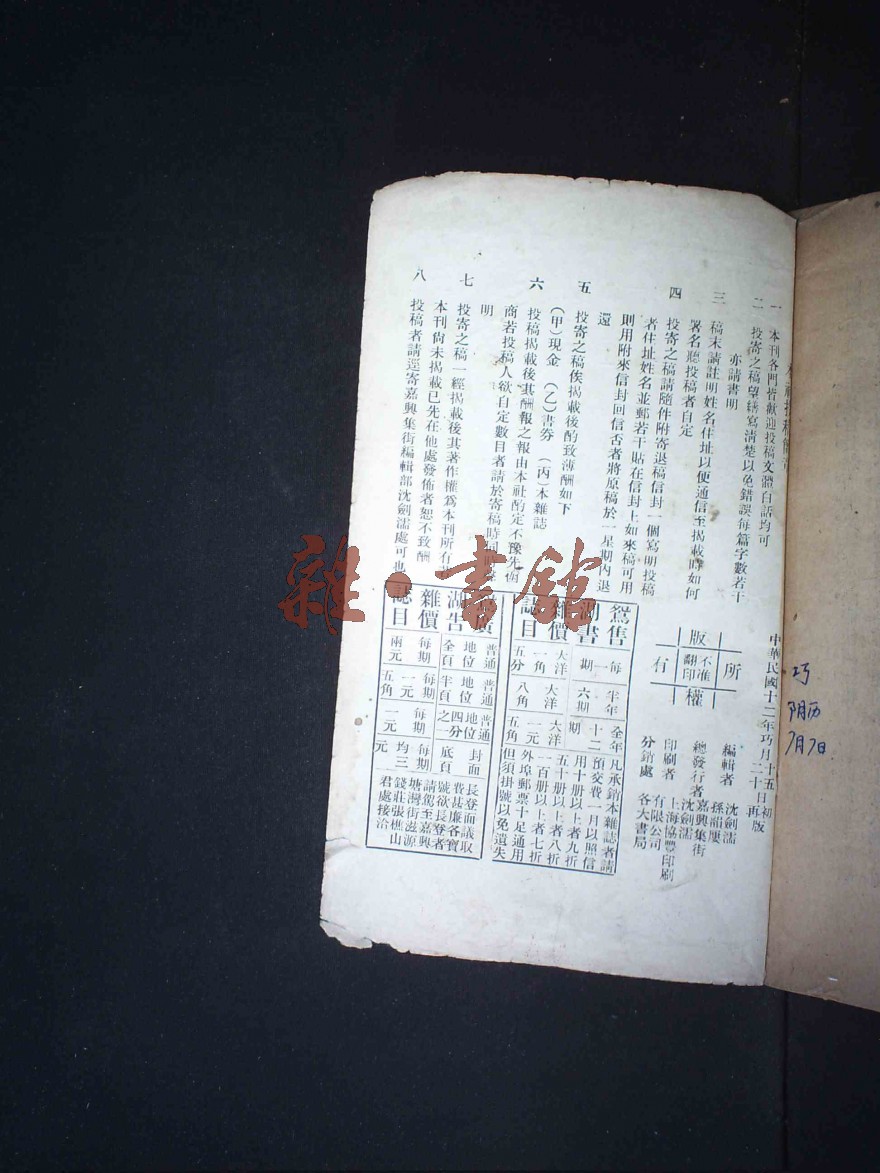 一　本刊各門皆歡迎投稿文體白話均可
二　投寄之稿望繕寫清楚以免錯誤每篇字數若干
亦請書明
三　稿末請註明姓名住址以便通信至揭載時如何
署名聽投稿者自定
四　投寄之稿請隨件附寄退稿信封一個寫明投稿
者住址姓名並郵若干貼在信封上如來稿可用
則用附來信封回信否者將原稿於一星期內退
還
五　投寄之稿俟揭載後酌致薄酬如下
(甲)現金　(乙)書券　(丙)本雜誌
六　投稿揭載後其酬報之報由本社酌定不豫先函
商若投稿人欲自定數目者請於寄稿時同時
明
七　投寄之稿一經揭載後其著作權爲本刊所有
本刊尙未揭載已先在他處發佈者恕不致酬
八　投稿者請逕寄嘉興集街編輯部沈劍濡處可也
中華民國十二年巧月十五日初
二十再版
版權所有
不准翻印
編輯者　沈劍濡
孫
總發行者　嘉興集街
沈劍濡
印刷者　上海協豐印刷
有限公司
分銷處　各大書局
鴛湖雜誌
售書價目
每一期　大洋一角五分
半年六期　大洋八角
全年十二期　大洋一元五角
凡承銷本雜誌者請
預交費一月以照信
用十册以上者九折
五十册以上者八折
一百册以上者七折
外埠郵票十足通用
但須掛號以免遺失
湖雜誌
廣告價目
普通地位全頁　每期兩元
普通地位半頁　每期一元五角
普通地位四分之一　每期一元
封面底頁　每期均三元
長登面議取
費甚廉各寶
號欲長登者
請駕至嘉興
塘灣街滋源
錢莊張樵山
君處接洽
巧
阴历
7月7日
雜·書館